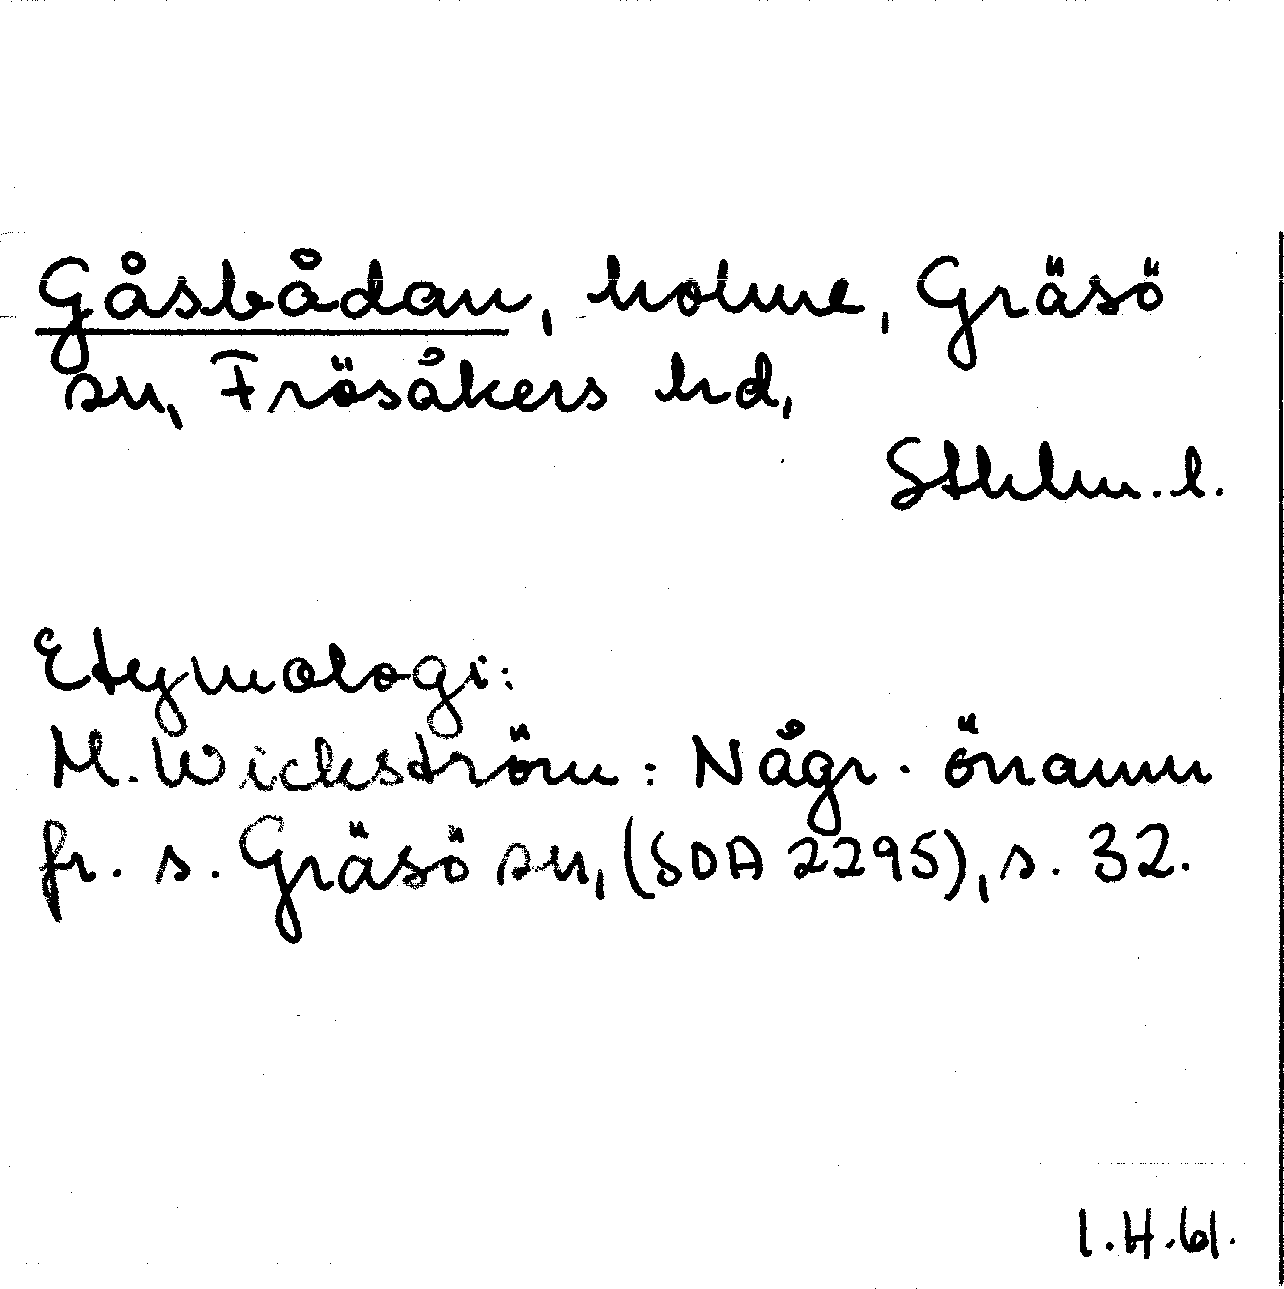 Gåsbådan, holme, Gräsö
sn, Frösåkers hd,
Sthlm. l.
Etymologi:
M. Wickström: Någr. önamn
fr. s. Gräsö sn, (SOA 2295), s. 32.
I.H.61.